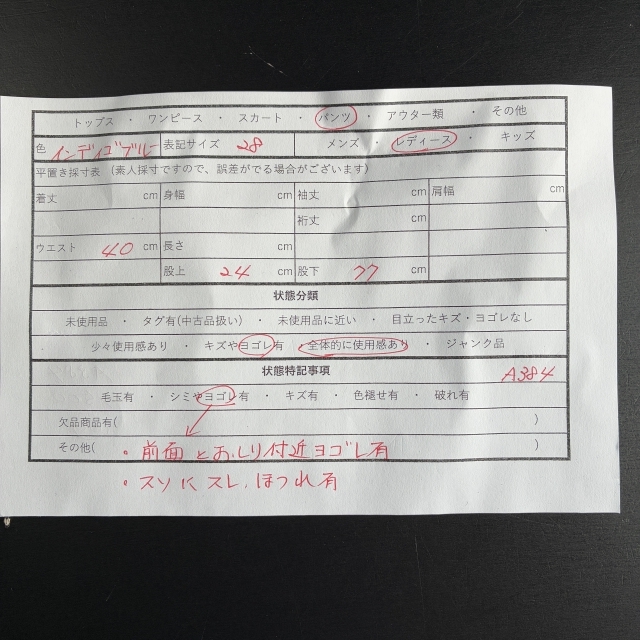 トップス ・ ワンピース ・ スカート ・ パンツ ・ アウター類 ・ その他
色 インディゴブルー 表記サイズ 28 メンズ ・ レディース ・ キッズ
平置き採寸表 (素人採寸ですので、誤差がでる場合がございます)
着丈 cm 身幅 cm 袖丈 cm 肩幅 cm
裄丈 cm
ウエスト 40 cm 長さ cm
股上 24 cm 股下 77 cm
状態分類
未使用品 ・ タグ有(中古品扱い) ・ 未使用品に近い ・ 目立ったキズ・ヨゴレなし
少々使用感あり ・ キズやヨゴレ有 ・ 全体的に使用感あり ・ ジャンク品
状態特記事項 A384
毛玉有 ・ シミやヨゴレ有 ・ キズ有 ・ 色褪せ有 ・ 破れ有
欠品商品有( )
その他( ・前面とおしり付近ヨゴレ有 )
・スソにスレ、ほつれ有